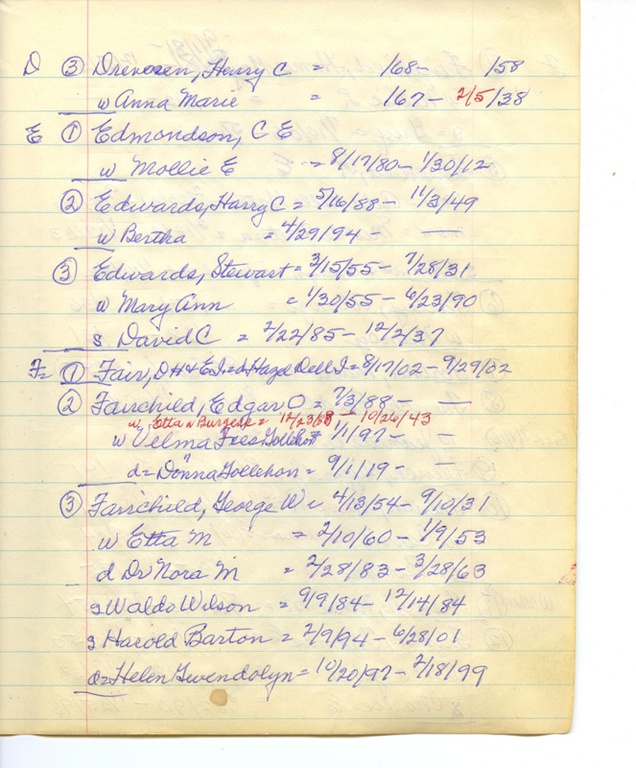 D ③ Drevosen, Henry C = /68- /58
w Anna Marie = /67- 2/5/38
E ① Edmondson, C E
w Mollie E = 8/17/80- 1/30/12
② Edwards, Harry C = 5/16/88- 11/3/49
w Bertha = 4/29/94- —
③ Edwards, Stewart = 3/15/55- 7/28/31
w Mary Ann = 1/30/55- 6/23/90
s David C = 2/22/85- 12/2/37
F= ① Fair, D H & E I = d Hazel Dell I = 8/17/02- 9/29/02
② Fairchild, Edgar O = 7/3/88- —
w, Etta Burgess = 12/23/68 - 10/26/43
w Velma = 1/1/97- —
d= Donna Gollehon = 9/1/19- —
③ Fairchild, George W = 4/13/54- 9/10/31
w Etta M = 2/10/60- 1/9/53
d Dr Nora M = 2/28/83- 3/28/63
s Waldo Wilson = 9/9/84- 12/14/84
s Harold Barton = 2/9/94- 6/28/01
d= Helen Gwendolyn = 10/20/97- 2/18/99